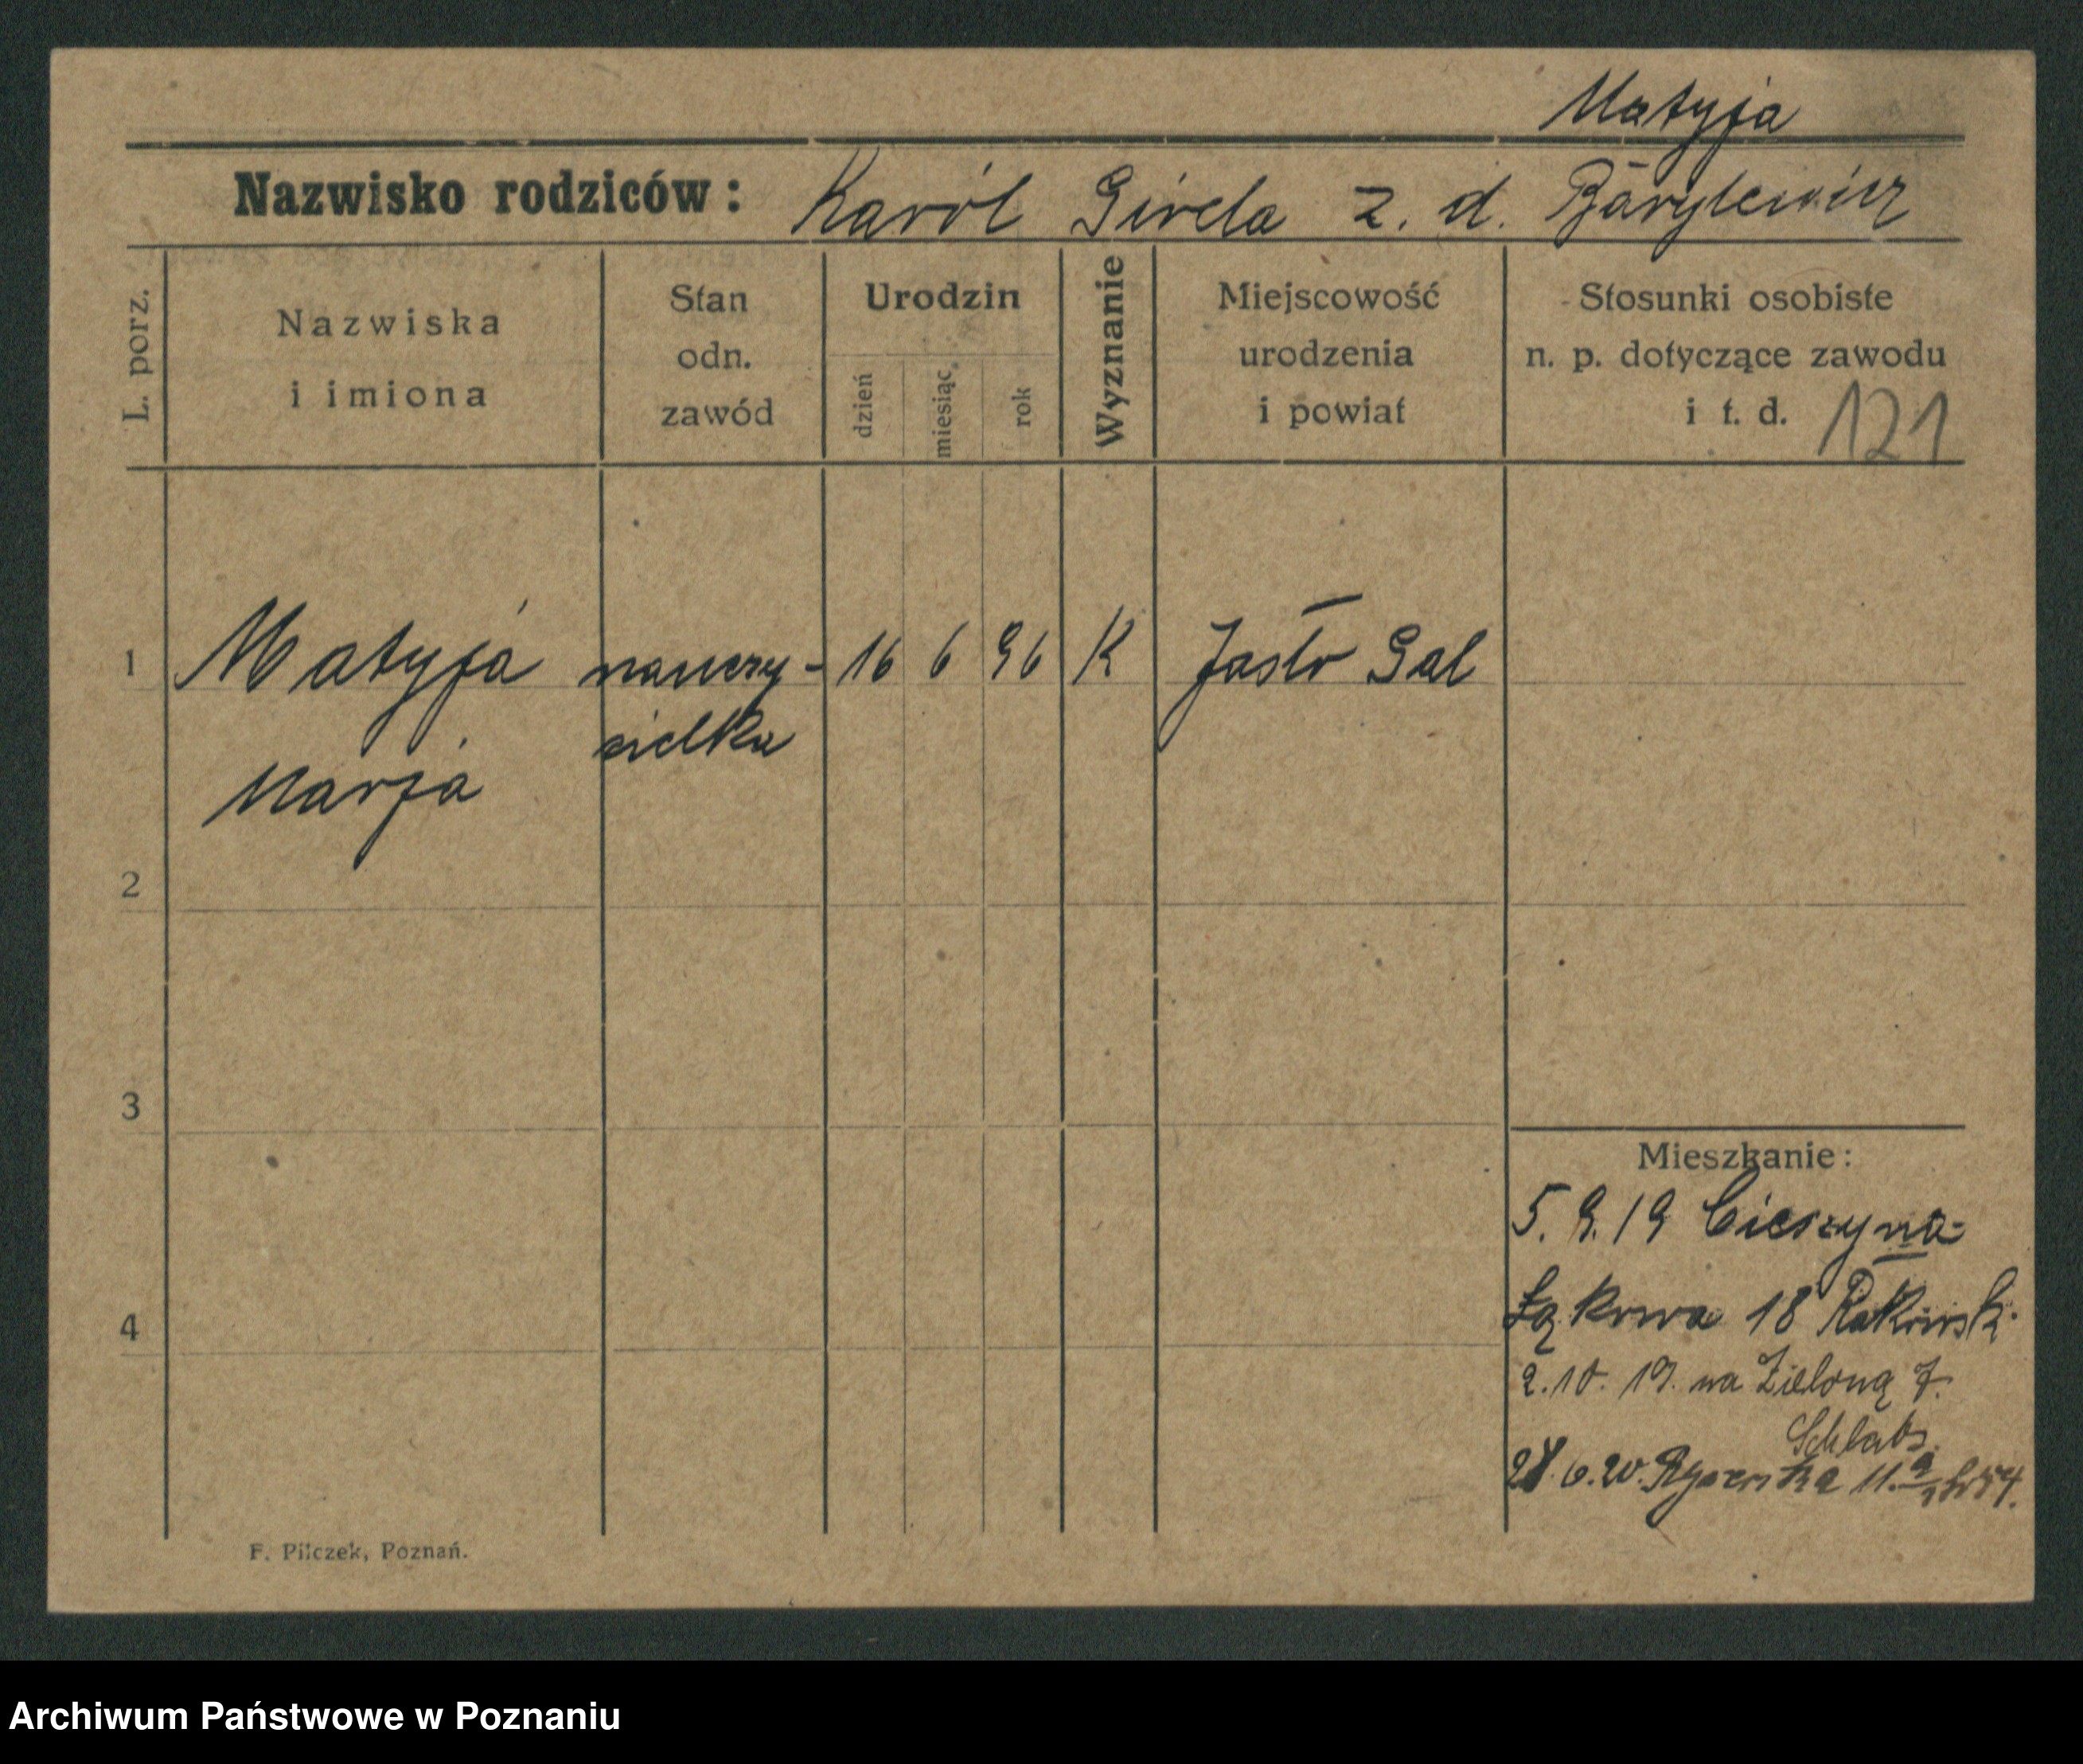 Matyja
Nazwisko rodziców: Karól Girela z. d. Barylewicz
L. porz.
Nazwiska
i imiona
Stan
odn.
zawód
Urodzin
dzień
miesiąc
rok
Wyznanie
Miejscowość
urodzenia
i powiat
Stosunki osobiste
n. p. dotyczące zawodu
i t. d. 121
1 Matyja nauczy- 16 6 96 K Jasło Gal
cielka
Marja
2
3
Mieszkanie:
5. 9. 19 Cieszyna
4 Łąkowa 18 Rakowsk.
2. 10. 19. na Zieloną 7.
Schlabs
6. 20.
F. Pilczek, Poznań.
Archiwum Państwowe w Poznaniu